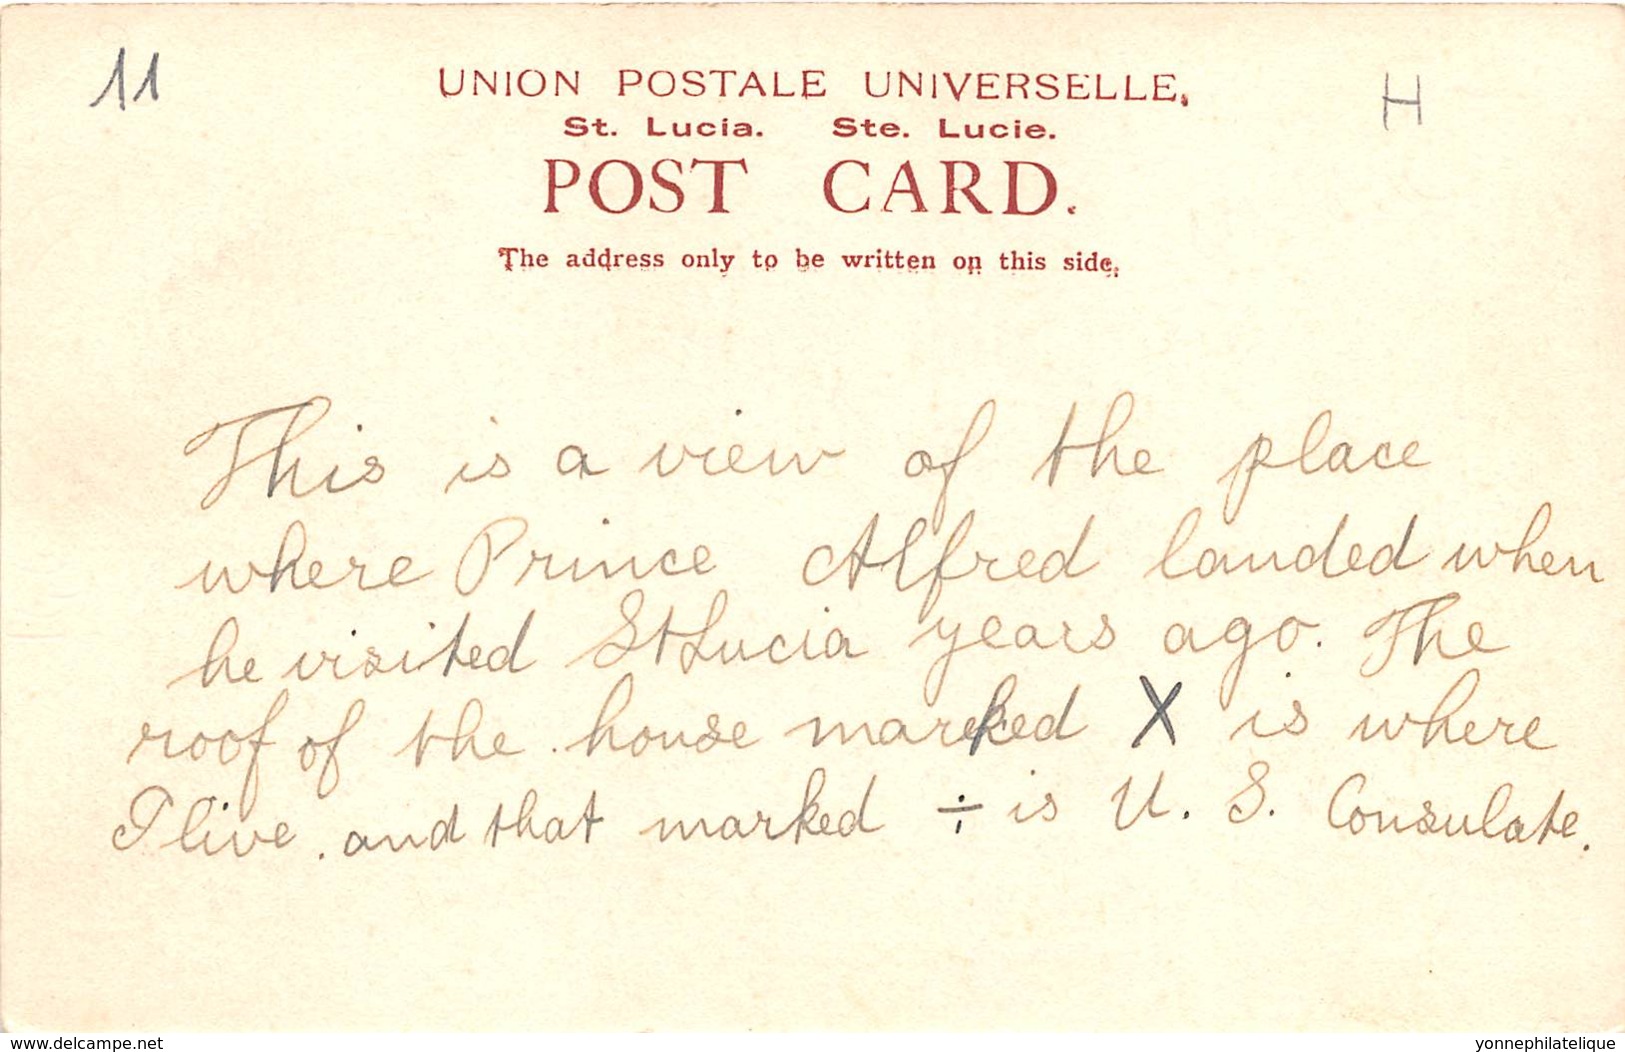 11
H
UNION POSTALE UNIVERSELLE.
St. Lucia. Ste. Lucie.
POST CARD.
The address only to be written on this side.
This is a view of the place
where Prince Alfred landed when
he visited St Lucia years ago. The
roof of the house marked X is where
I live. and that marked ÷ is U. S. Consulate.
www.delcampe.net
yonnephilatelique